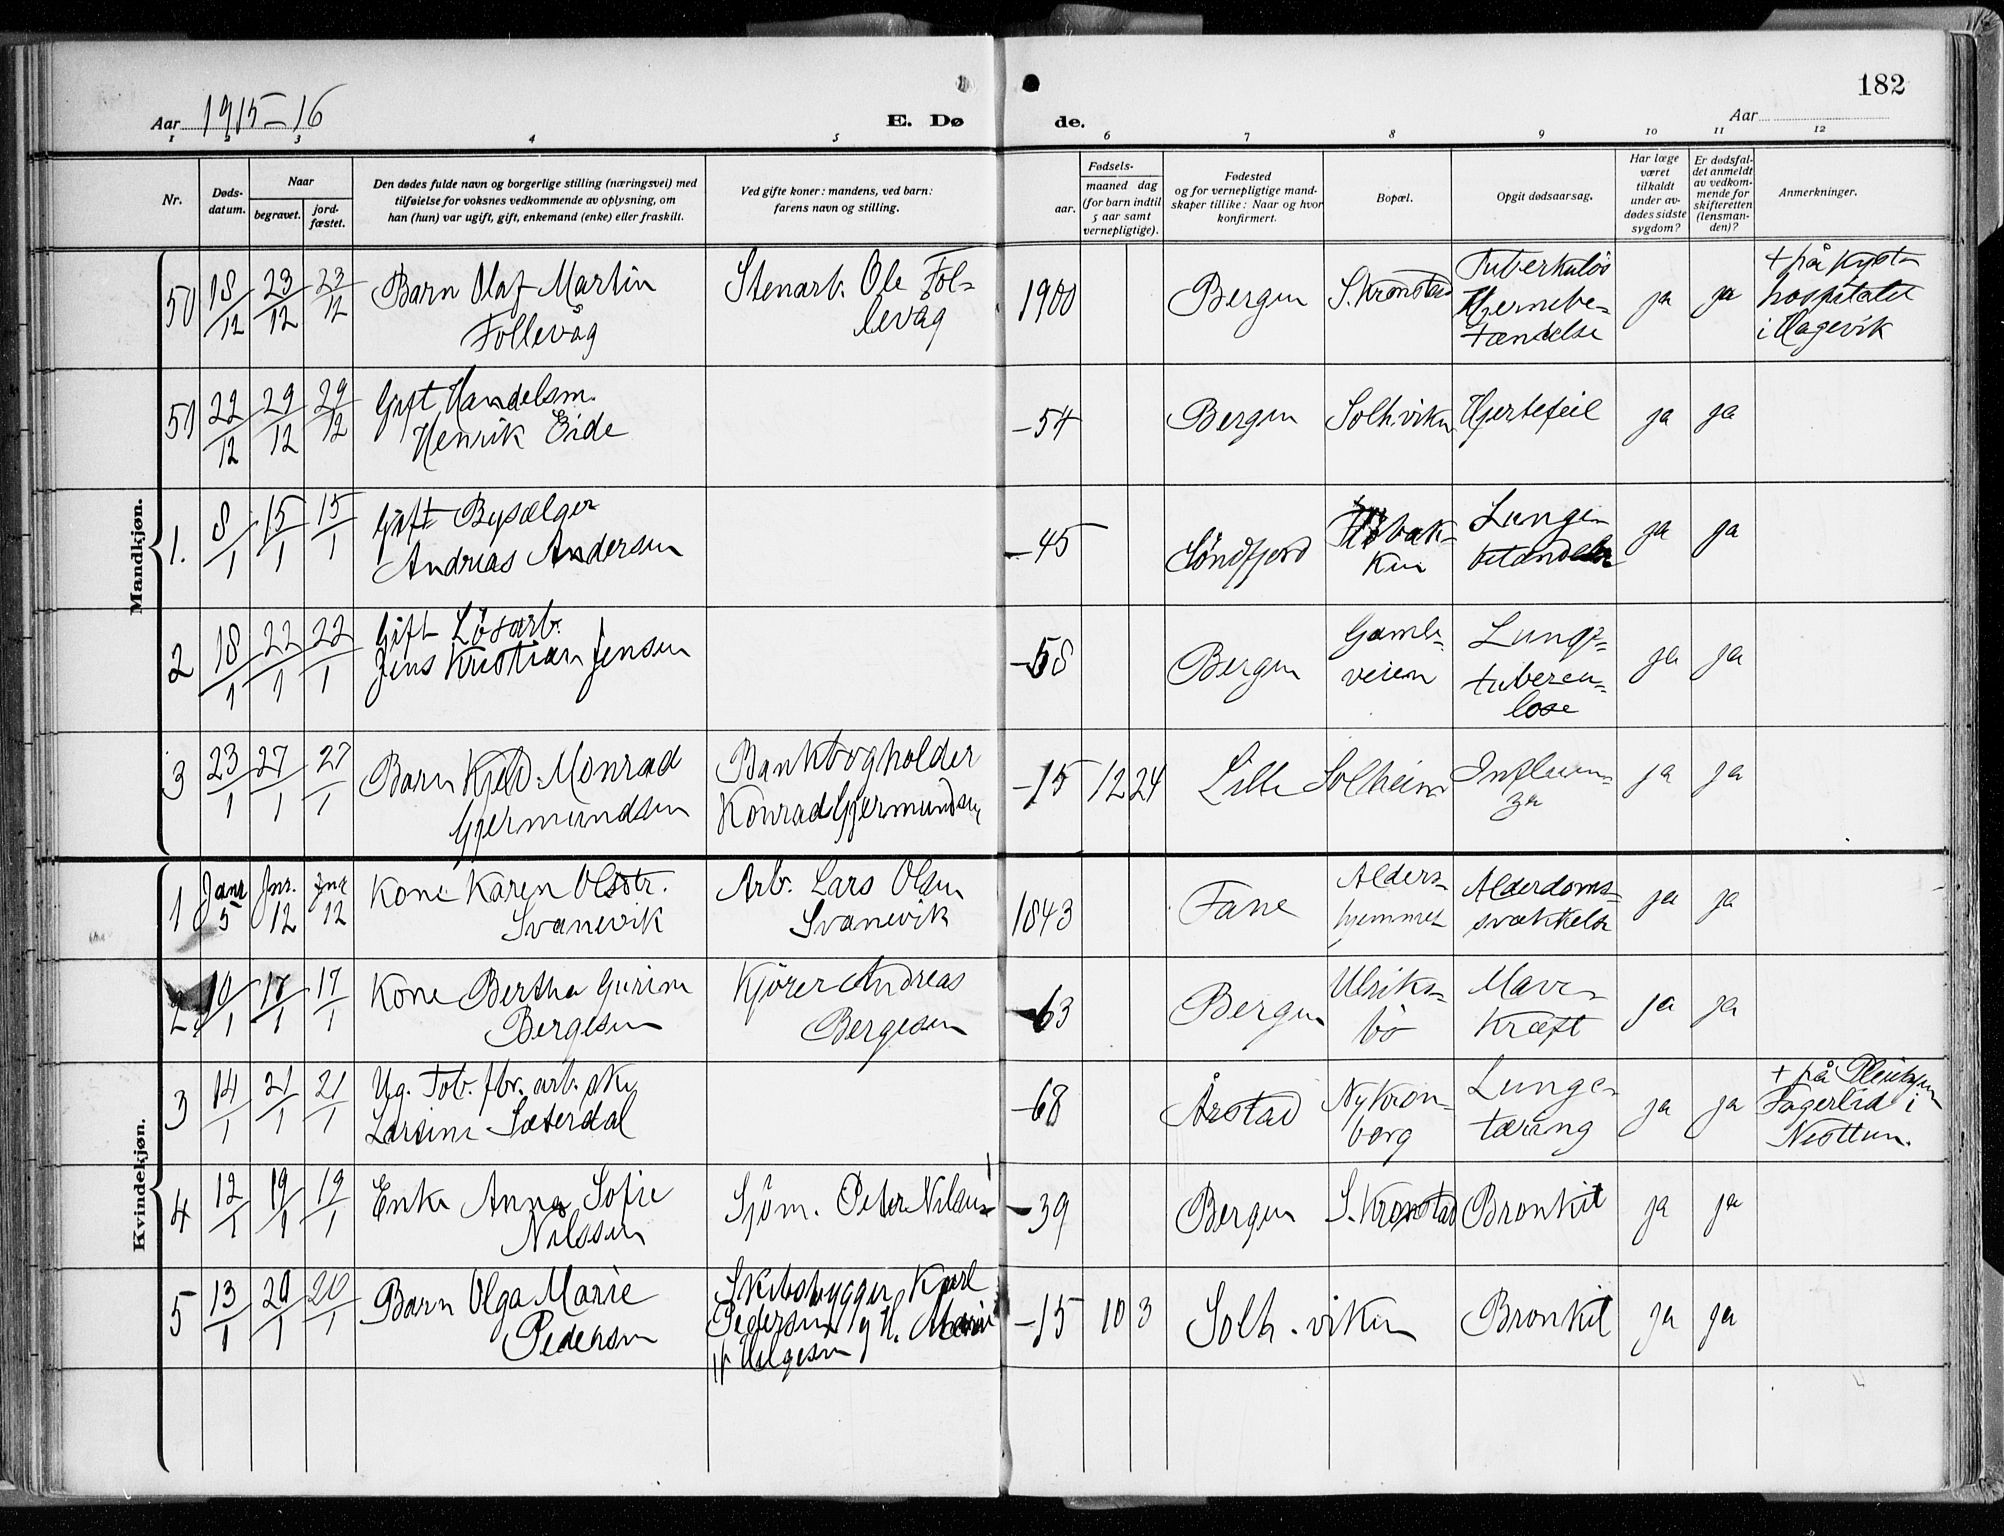 182
Aar 1915-16
E. Dø de.
Aar
1 2 3 4 5 6 7 8 9 10 11 12
Nr.
Døds-
datum.
Naar
begravet.
jord-
fæstet.
Den dødes fulde navn og borgerlige stilling (næringsvei) med
tilføielse for voksnes vedkommende av oplysning, om
han (hun) var ugift, gift, enkemand (enke) eller fraskilt.
Ved gifte koner: mandens, ved barn:
farens navn og stilling.
Fødsels-
aar.
maaned dag
(for barn indtil
5 aar samt
vernepligtige).
Fødested
og for vernepligtige mand-
skaper tillike: Naar og hvor
konfirmert.
Bopæl.
Opgit dødsaarsag.
Har læge
været
tilkaldt
under av-
dødes sidste
sygdom?
Er dødsfal-
det anmeldt
av vedkom-
mende for
skifteretten
(lensman-
den)?
Anmerkninger.
Mandkjøn.
50 18/12 23/12 23/12
Barn Olaf Martin
Follevåg
Stenarb. Ole Fol-
levåg
1900
Bergen
S. Kronstad
Tuberkuløs
Hjernebe-
tændelse
ja ja
+ på Kyst-
hospitalet
i Hagevik
51 22/12 29/12 29/12
Gift Handelsm.
Henrik Eide
-54
Bergen
Solh.viken
Hjertefeil
ja ja
1. 8/1 15/1 15/1
Gift Bysælger
Andreas Andersen
-45
Söndfjord
bak-
ken
Lunge-
betændelse
ja ja
2 18/1 22/1 22/1
Gift Lösarb.
Jens Kristian Jensen
-58
Bergen
Gamle-
veien
Lunge-
tubercu-
lose
ja ja
3 23/1 27/1 27/1
Barn Kjeld Monrad
Gjermundsen
Bankbogholder
Konrad Gjermundsen
-15 12 24
Lille Solheim
Influen-
za
ja ja
Kvindekjøn.
1 Janr 5 Jnr. 12 Jnr 12
Kone Karen Olsdtr.
Svanevik
Arb. Lars Olsen
Svanevik
1843
Fane
Alders-
hjemmet
Alderdoms-
svækkelse
ja ja
2. 10/1 17/1 17/1
Kone Bertha Gurine
Bergesen
Kjörer Andreas
Bergesen
-63
Bergen
Ulriks-
bö
Mave-
kræft
ja ja
3 14/1 21/1 21/1
Ug. Tob. fbr. arb. ske
Larsine Sæterdal
-68
Årstad
Ny Kron-
borg
Lunge-
tæring
ja ja
+ på Pleiehjem
Fagerlid i
Nesttun.
4 12/1 19/1 19/1
Enke Anna Sofie
Nilssen
Sjöm. Peter Nilsen
-39
Bergen
S. Kronstad
Bronkit
ja ja
5 13/1 20/1 20/1
Barn Olga Marie
Pedersen
Skibsbygger Karl
Pedersen og H. Marie
f. Helgesen
-15 10 3
Solh.viken
Bronkit
ja ja